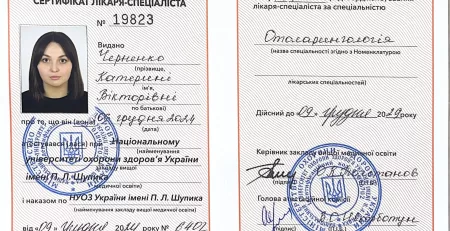 СЕРТИФІКАТ ЛІКАРЯ-СПЕЦІАЛІСТА
№ 19823
Видано
Черненко
(прізвище,
Катерині
ім'я,
Вікторівні
по батькові)
про те, що він (вона) 06 грудня 2024
(дата)
Національному
(найменування
університеті охорони здоров'я України
імені П. Л. Шупика
закладу вищої медичної освіти)
і наказом по НУОЗ України імені П. Л. Шупика
(найменування закладу вищої медичної освіти)
від «09» грудня 2024 р. №
лікаря-спеціаліста за спеціальністю
Отоларингологія
(назва спеціальності згідно з Номенклатурою
лікарських спеціальностей)
Дійсний до «09» грудня 2029 року
Керівник закладу вищої медичної освіти
Голова атестаційної комісії